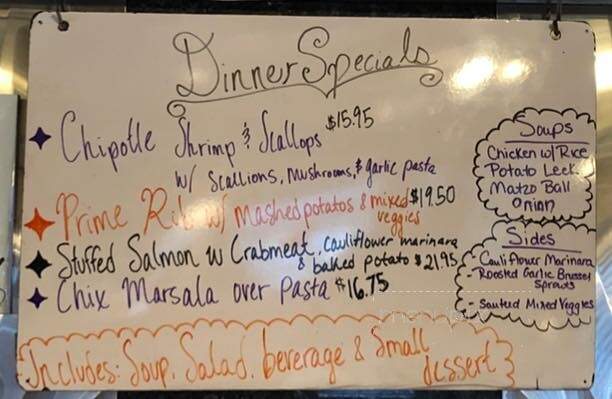 Dinner Specials
Chipotle Shrimp & Scallops $15.95
w/ Scallions, Mushrooms, & garlic pasta
Prime Rib w/ mashed potatos & mixed $19.50
veggies
Stuffed Salmon w Crabmeat, cauliflower marinara
& baked potato $21.95
Chix Marsala over Pasta $16.75
Includes: Soup, Salad, beverage & Small
dessert
Soups
Chicken w/ Rice
Potato Leek
Matzo Ball
Onion
Sides
- Cauliflower Marinara
- Roasted Garlic Brussel
Sprouts
- Sauteed Mixed Veggies